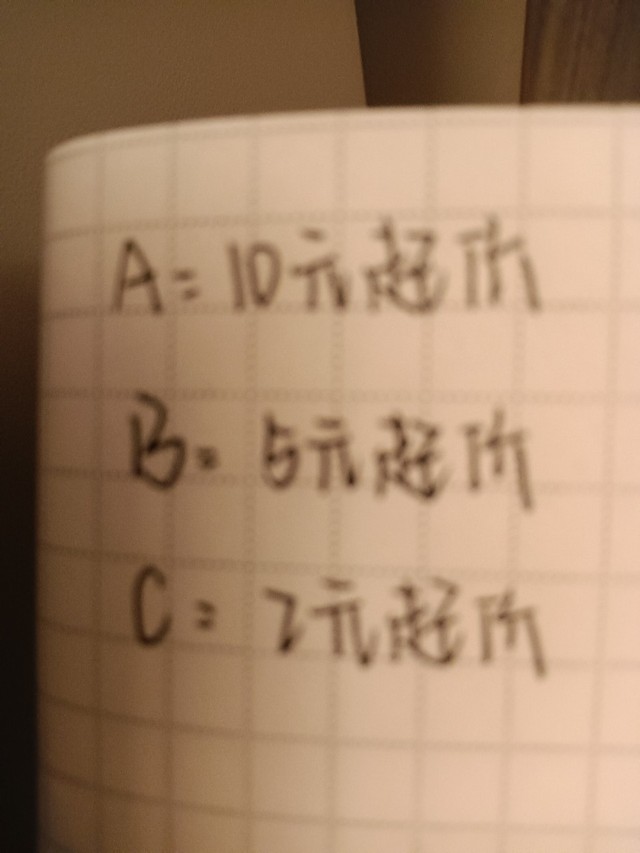 A=10元起价
B=5元起价
C=2元起价